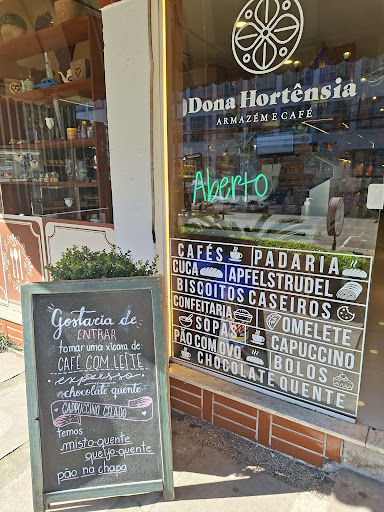 Dona Hortênsia
ARMAZÉM E CAFÉ
Aberto
CAFÉS PADARIA
CUCA APFELSTRUDEL
BISCOITOS CASEIROS
CONFEITARIA OMELETE
SOPAS CAPPUCCINO
PÃO COM OVO BOLOS
CHOCOLATE QUENTE
Gostaria de
ENTRAR
tomar uma xícara de
CAFÉ COM LEITE
expresso
chocolate quente
CAPPUCCINO GELADO
temos
misto-quente
queijo-quente
pão na chapa